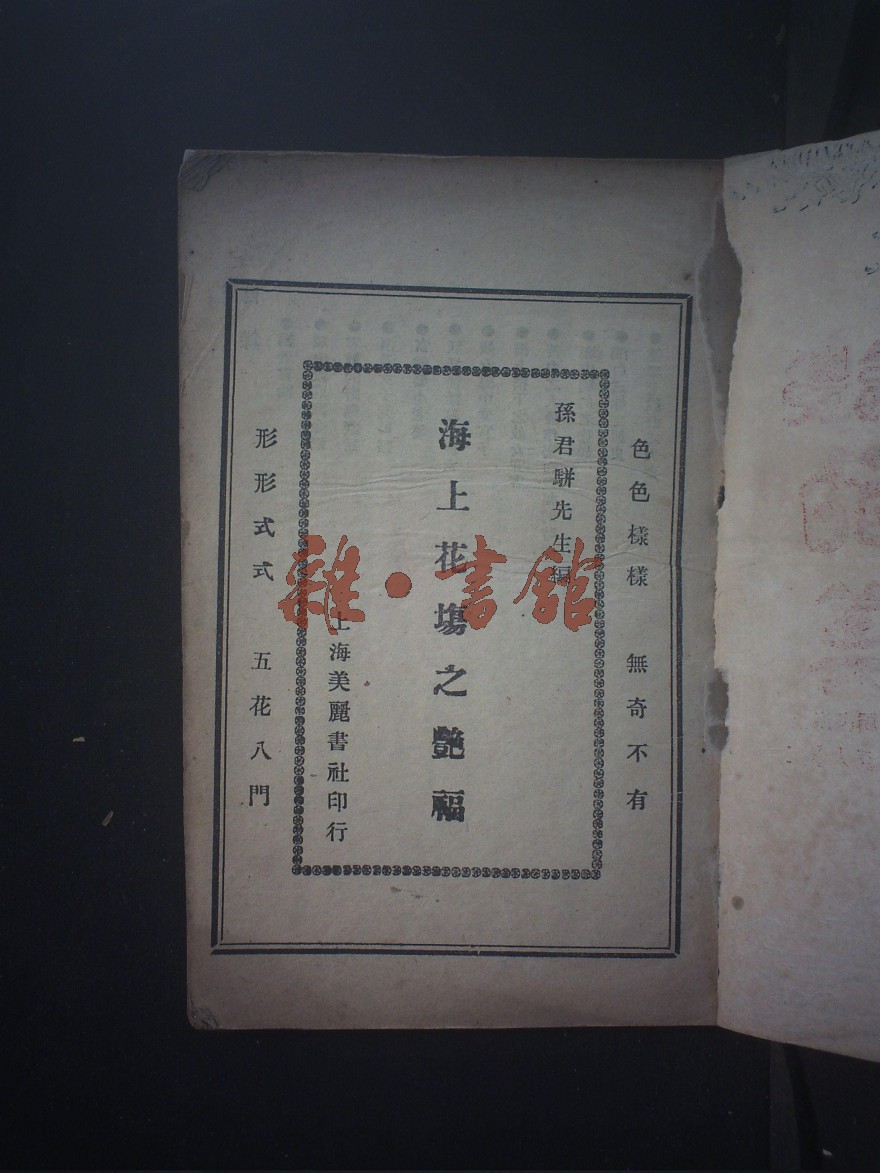 色色樣樣 無奇不有
孫君駢先生編
海上花塲之艷福
上海美麗書社印行
形形式式 五花八門
雜·書館